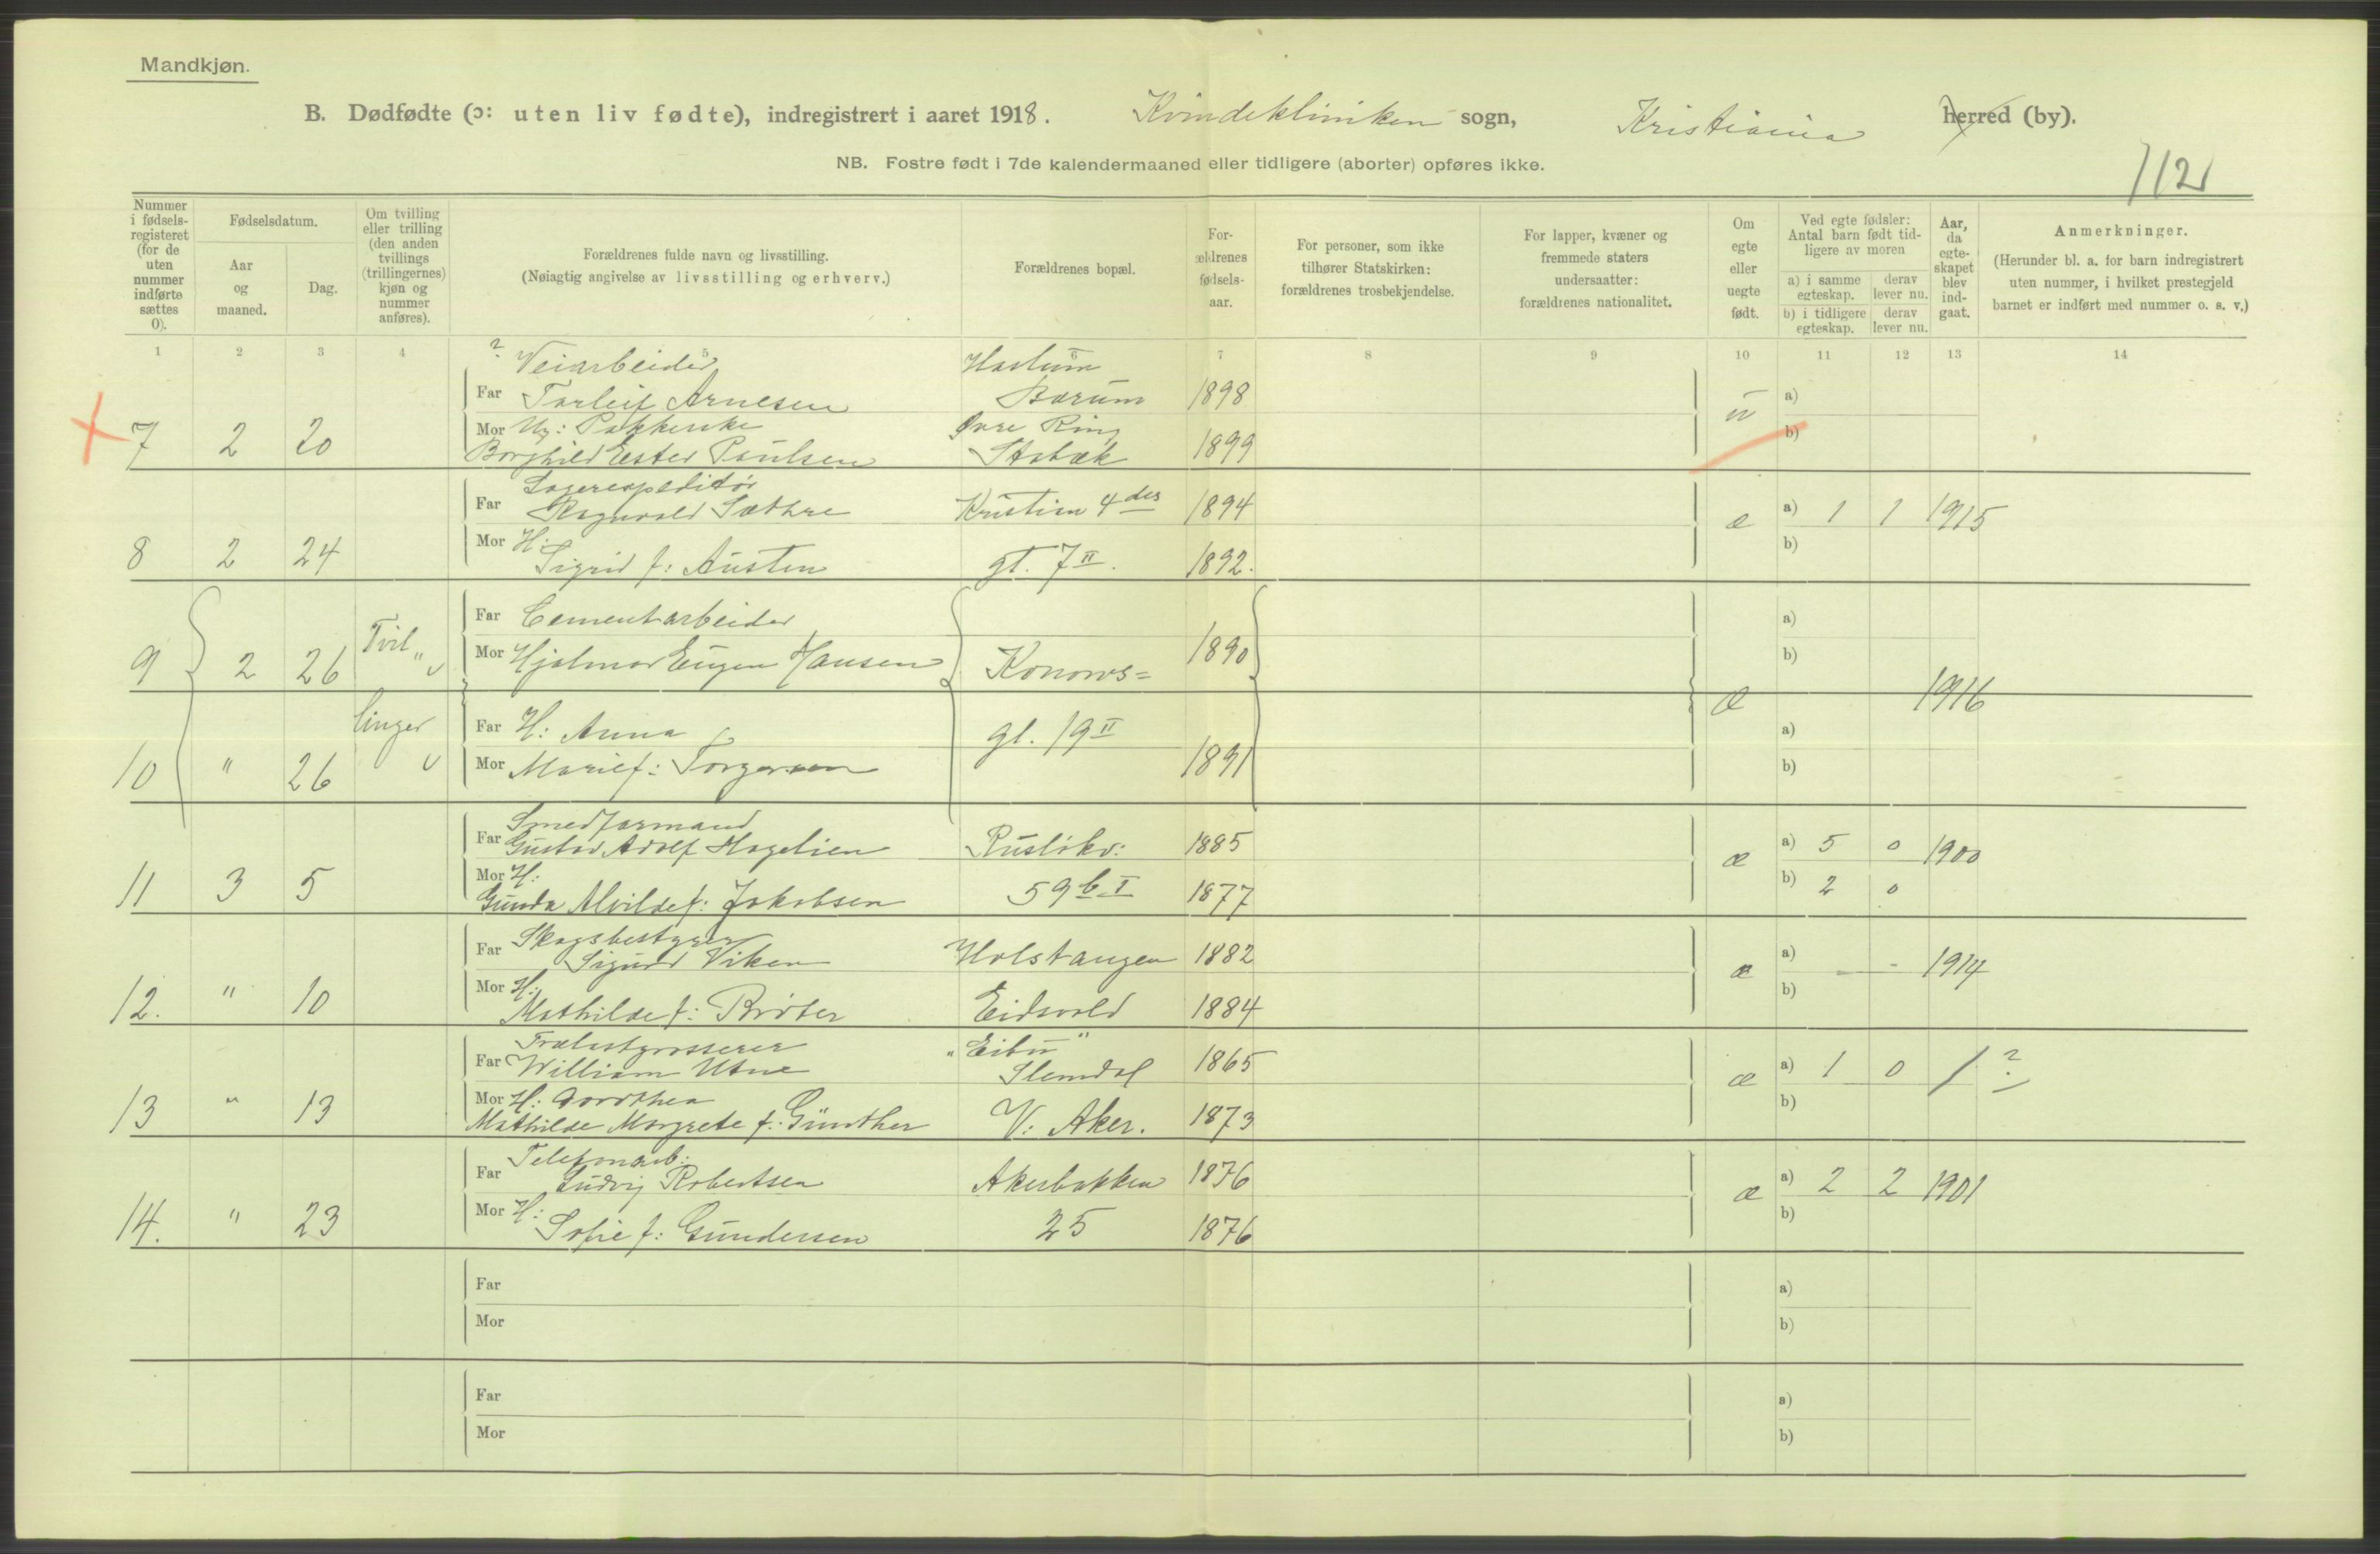 Mandkjøn.
B. Dødfødte (ɔ: uten liv fødte), indregistrert i aaret 1918. Kvindekliniken sogn, Kristiania herred (by).
NB. Fostre født i 7de kalendermaaned eller tidligere (aborter) opføres ikke.
112
Nummer i fødsels-registeret (for de uten nummer indførte sættes 0).
Fødselsdatum.
Aar og maaned.
Dag.
Om tvilling eller trilling (den anden tvillings (trillingernes) kjøn og nummer anføres).
Forældrenes fulde navn og livsstilling.
(Nøiagtig angivelse av livsstilling og erhverv.)
Forældrenes bopæl.
For-ældrenes fødsels-aar.
For personer, som ikke tilhører Statskirken: forældrenes trosbekjendelse.
For lapper, kvæner og fremmede staters undersaatter: forældrenes nationalitet.
Om egte eller uegte født.
Ved egte fødsler: Antal barn født tid-ligere av moren
a) i samme egteskap. derav lever nu.
b) i tidligere egteskap. derav lever nu.
Aar, da egte-skapet blev ind-gaat.
Anmerkninger.
(Herunder bl. a. for barn indregistrert uten nummer, i hvilket prestegjeld barnet er indført med nummer o. s. v.)
1 2 3 4 5 6 7 8 9 10 11 12 13 14
? Veiarbeider Haslum
Far Torleif Arnesen Bærum 1898 a)
Mor Ug: Pakkerske Øvre Ring u
7 2 20 Borghild Ester Paulsen Stabæk 1899 b)
Lagerexpeditør
Far Ragnvald Sæthre Kristian 4des 1894 æ a) 1 1 1915
Mor H:
8 2 24 Sigrid f: Austen gt. 7 II. 1892. b)
Far Cementarbeider a)
9 2 26 Tvil " Mor Hjalmar Eugen Hansen Konows= 1890 b)
æ 1916
linger Far H: Anna gt. 19 II a)
10 " 26 Mor Marie f: Torgersen 1891 b)
Smedformand
Far Gustav Adolf Hagelien Rusløkv: 1885 æ a) 5 0 1900
Mor H:
11 3 5 Gunda Alvilde f: Jakobsen 59 b I 1877 b) 2 0
Skogsbestyrer
Far Sigurd Viken Holstangen 1882 æ a) - - 1914
Mor H:
12. " 10 Mathilde f: Brøter Eidsvold 1884 b)
Trælastgrosserer "Eibu"
Far William Utne Slemdal 1865 æ a) 1 0 1 ?
Mor H: Dorothea
13 " 13 Mathilde Margrete f: Günther V: Aker. 1873 b)
Telefonarb:
Far Ludvig Robertsen Akersbakken 1876 æ a) 2 2 1901
Mor H:
14. " 23 Sofie f: Gundersen 25 1876 b)
Far a)
Mor b)
Far a)
Mor b)